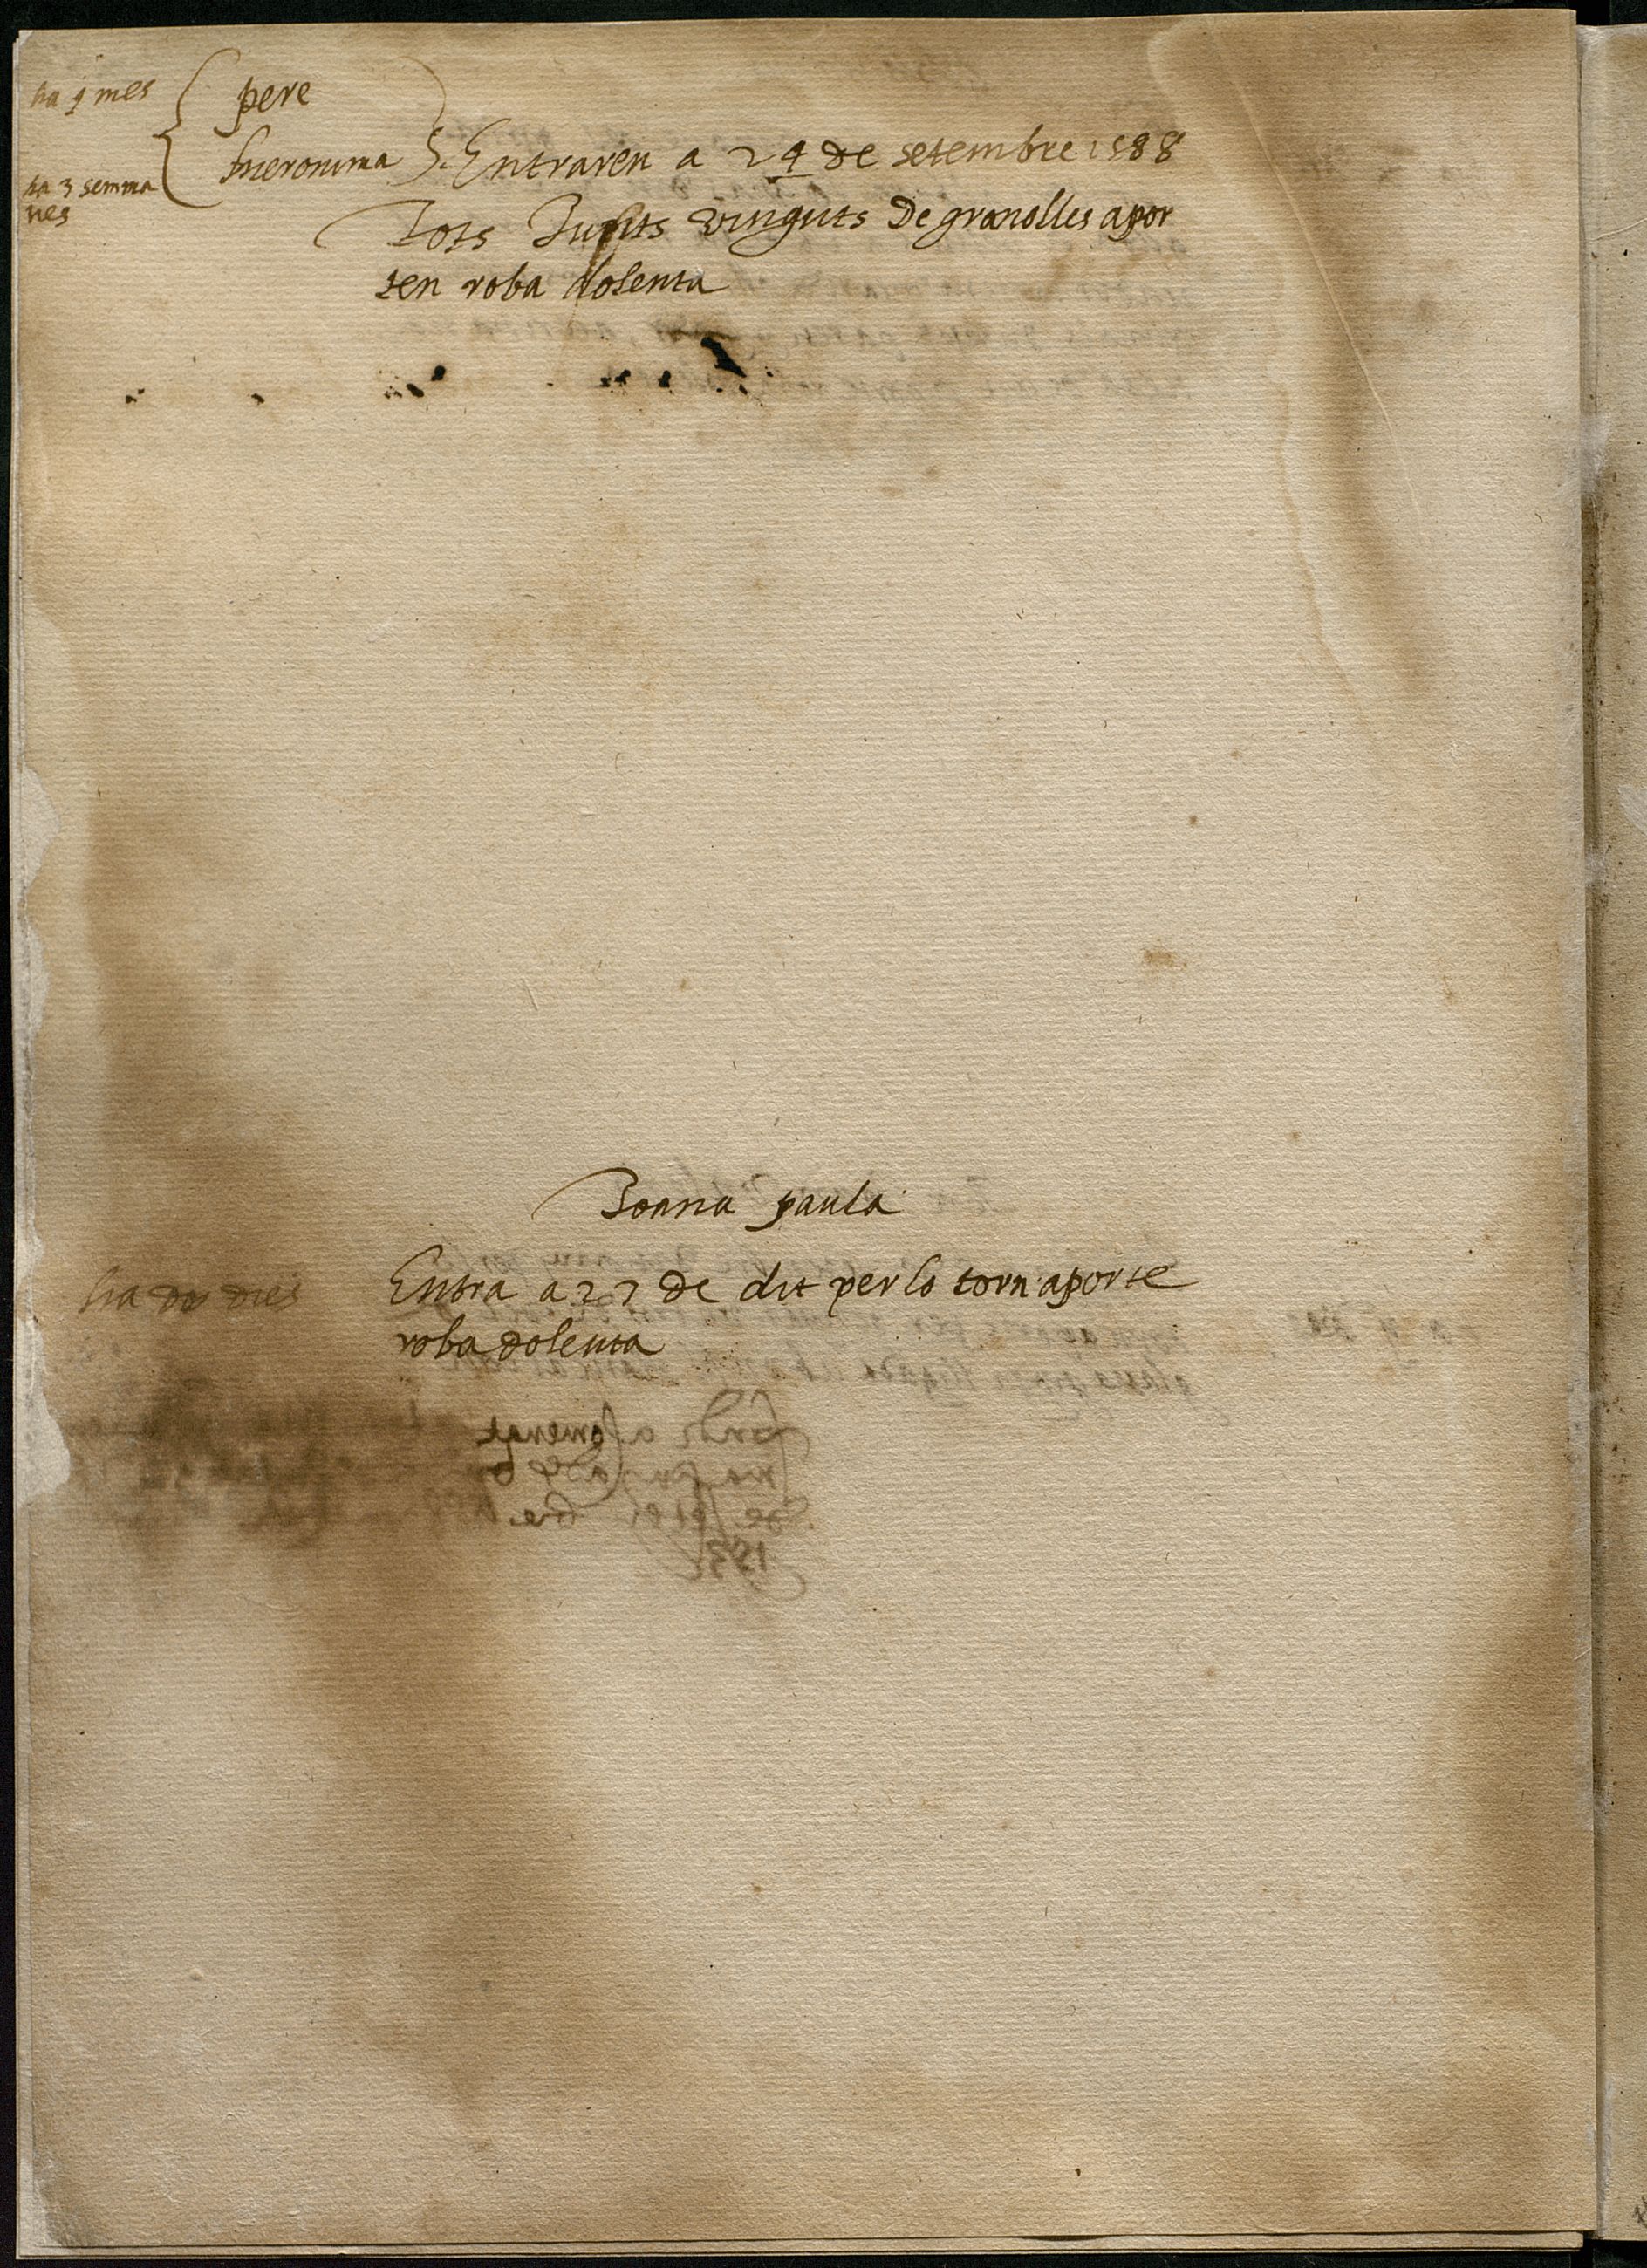 ha 1 mes
pere
hieronima
ha 3 semma
nes
Entraren a 24 de setembre 1588
Tots Iunts vinguts de granolles apor
ten roba dolenta
Joana paula
ha dos dies
Entra a 27 de dit per lo torn aporte
roba dolenta